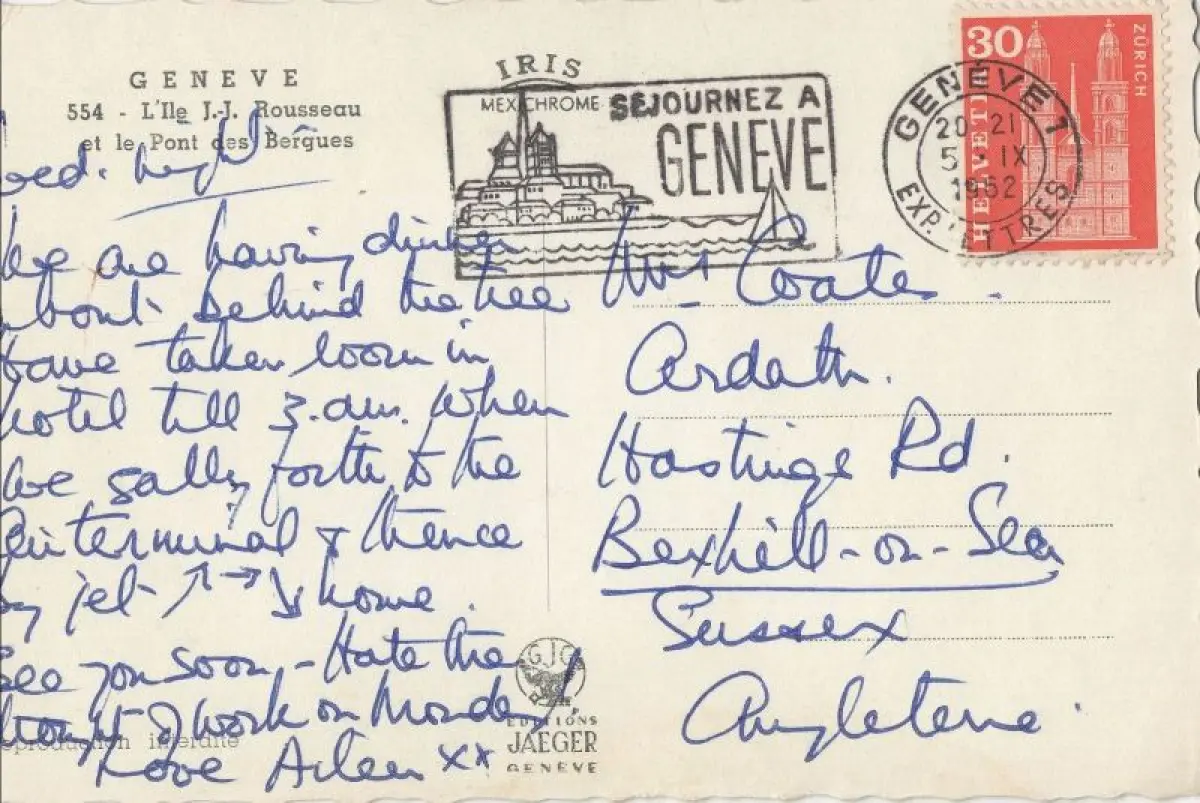 GENEVE
554 - L'Ile J.-J. Rousseau
et le Pont des Bergues
Wed. night
We are having dinner
about behind the tree
have taken room in
hotel till 3.am. when
we sally forth to the
air terminal & thence
by jet ↗→↘ home.
See you soon - Hate the
thought of work on Monday
Love Aileen xx
reproduction interdite
IRIS
MEXICHROME
SÉJOURNEZ A
GENEVE
GENÈVE 1
20-21
5.IX
1962
EXP. LETTRES
30
HELVETIA
ZÜRICH
Mrs Coates.
Ardath.
Hastings Rd.
Bexhill-on-Sea
Sussex
Angleterre.
GJC
EDITIONS
JAEGER
GENEVE